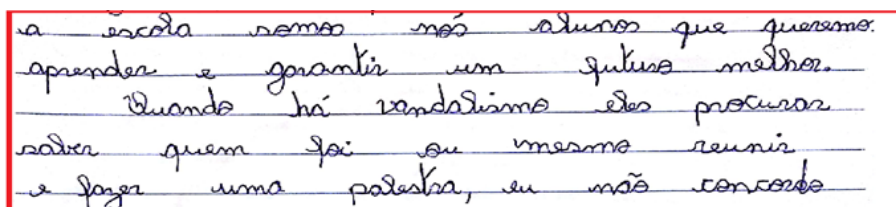 a escola somos nós alunos que queremo.
aprender e garantir um futuro melhor.
Quando há vandalismo eles procurar
saber quem foi ou mesmo reunir
e fazer uma palestra, eu não concordo